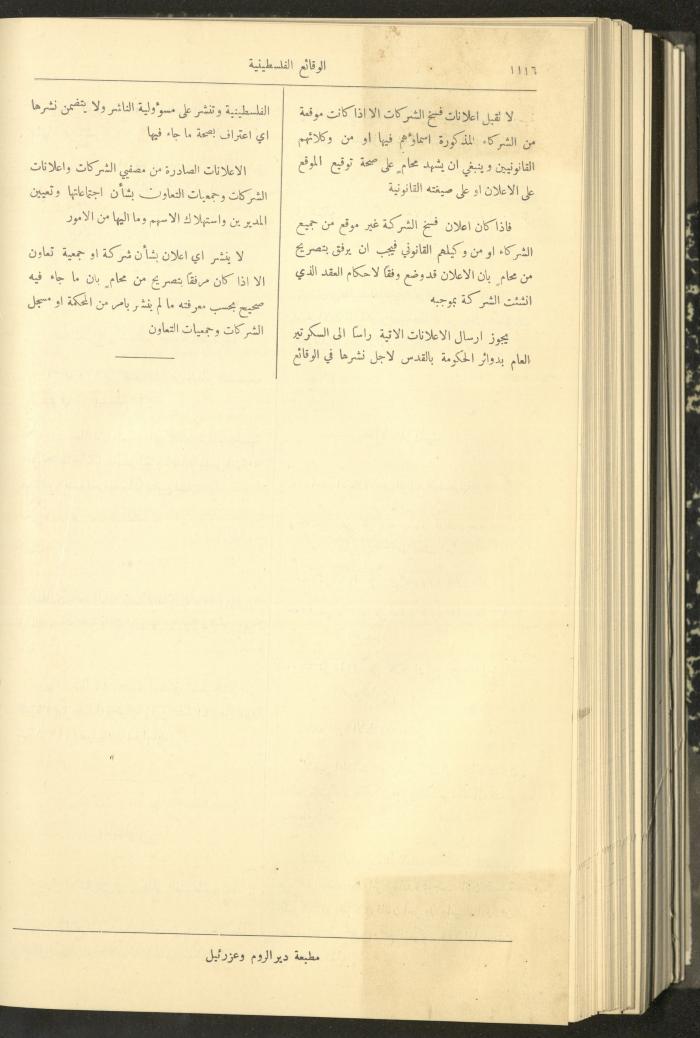 ١١١٦
الوقائع الفلسطينية
لا تقبل اعلانات فسخ الشركات الا اذا كانت موقعة
من الشركاء المذكورة اسماؤهم فيها او من وكلائهم
القانونيين وينبغي ان يشهد محام على صحة توقيع الموقع
على الاعلان او على صيغته القانونية
فاذا كان اعلان فسخ الشركة غير موقع من جميع
الشركاء او من وكيلهم القانوني فيجب ان يرفق بتصريح
من محام بان الاعلان قد وضع وفقا لاحكام العقد الذي
انشئت الشركة بموجبه
يجوز ارسال الاعلانات الاتية راسا الى السكرتير
العام بدوائر الحكومة بالقدس لاجل نشرها في الوقائع
الفلسطينية وتنشر على مسوؤلية الناشر ولا يتضمن نشرها
اي اعتراف بصحة ما جاء فيها
الاعلانات الصادرة من مصفيي الشركات واعلانات
الشركات وجمعيات التعاون بشأن اجتماعاتها وتعيين
المديرين واستهلاك الاسهم وما اليها من الامور
لا ينشر اي اعلان بشأن شركة او جمعية تعاون
الا اذا كان مرفقا بتصريح من محام بان ما جاء فيه
صحيح بحسب معرفته ما لم ينشر بامر من المحكمة او مسجل
الشركات وجمعيات التعاون
مطبعة دير الروم وعزرئيل